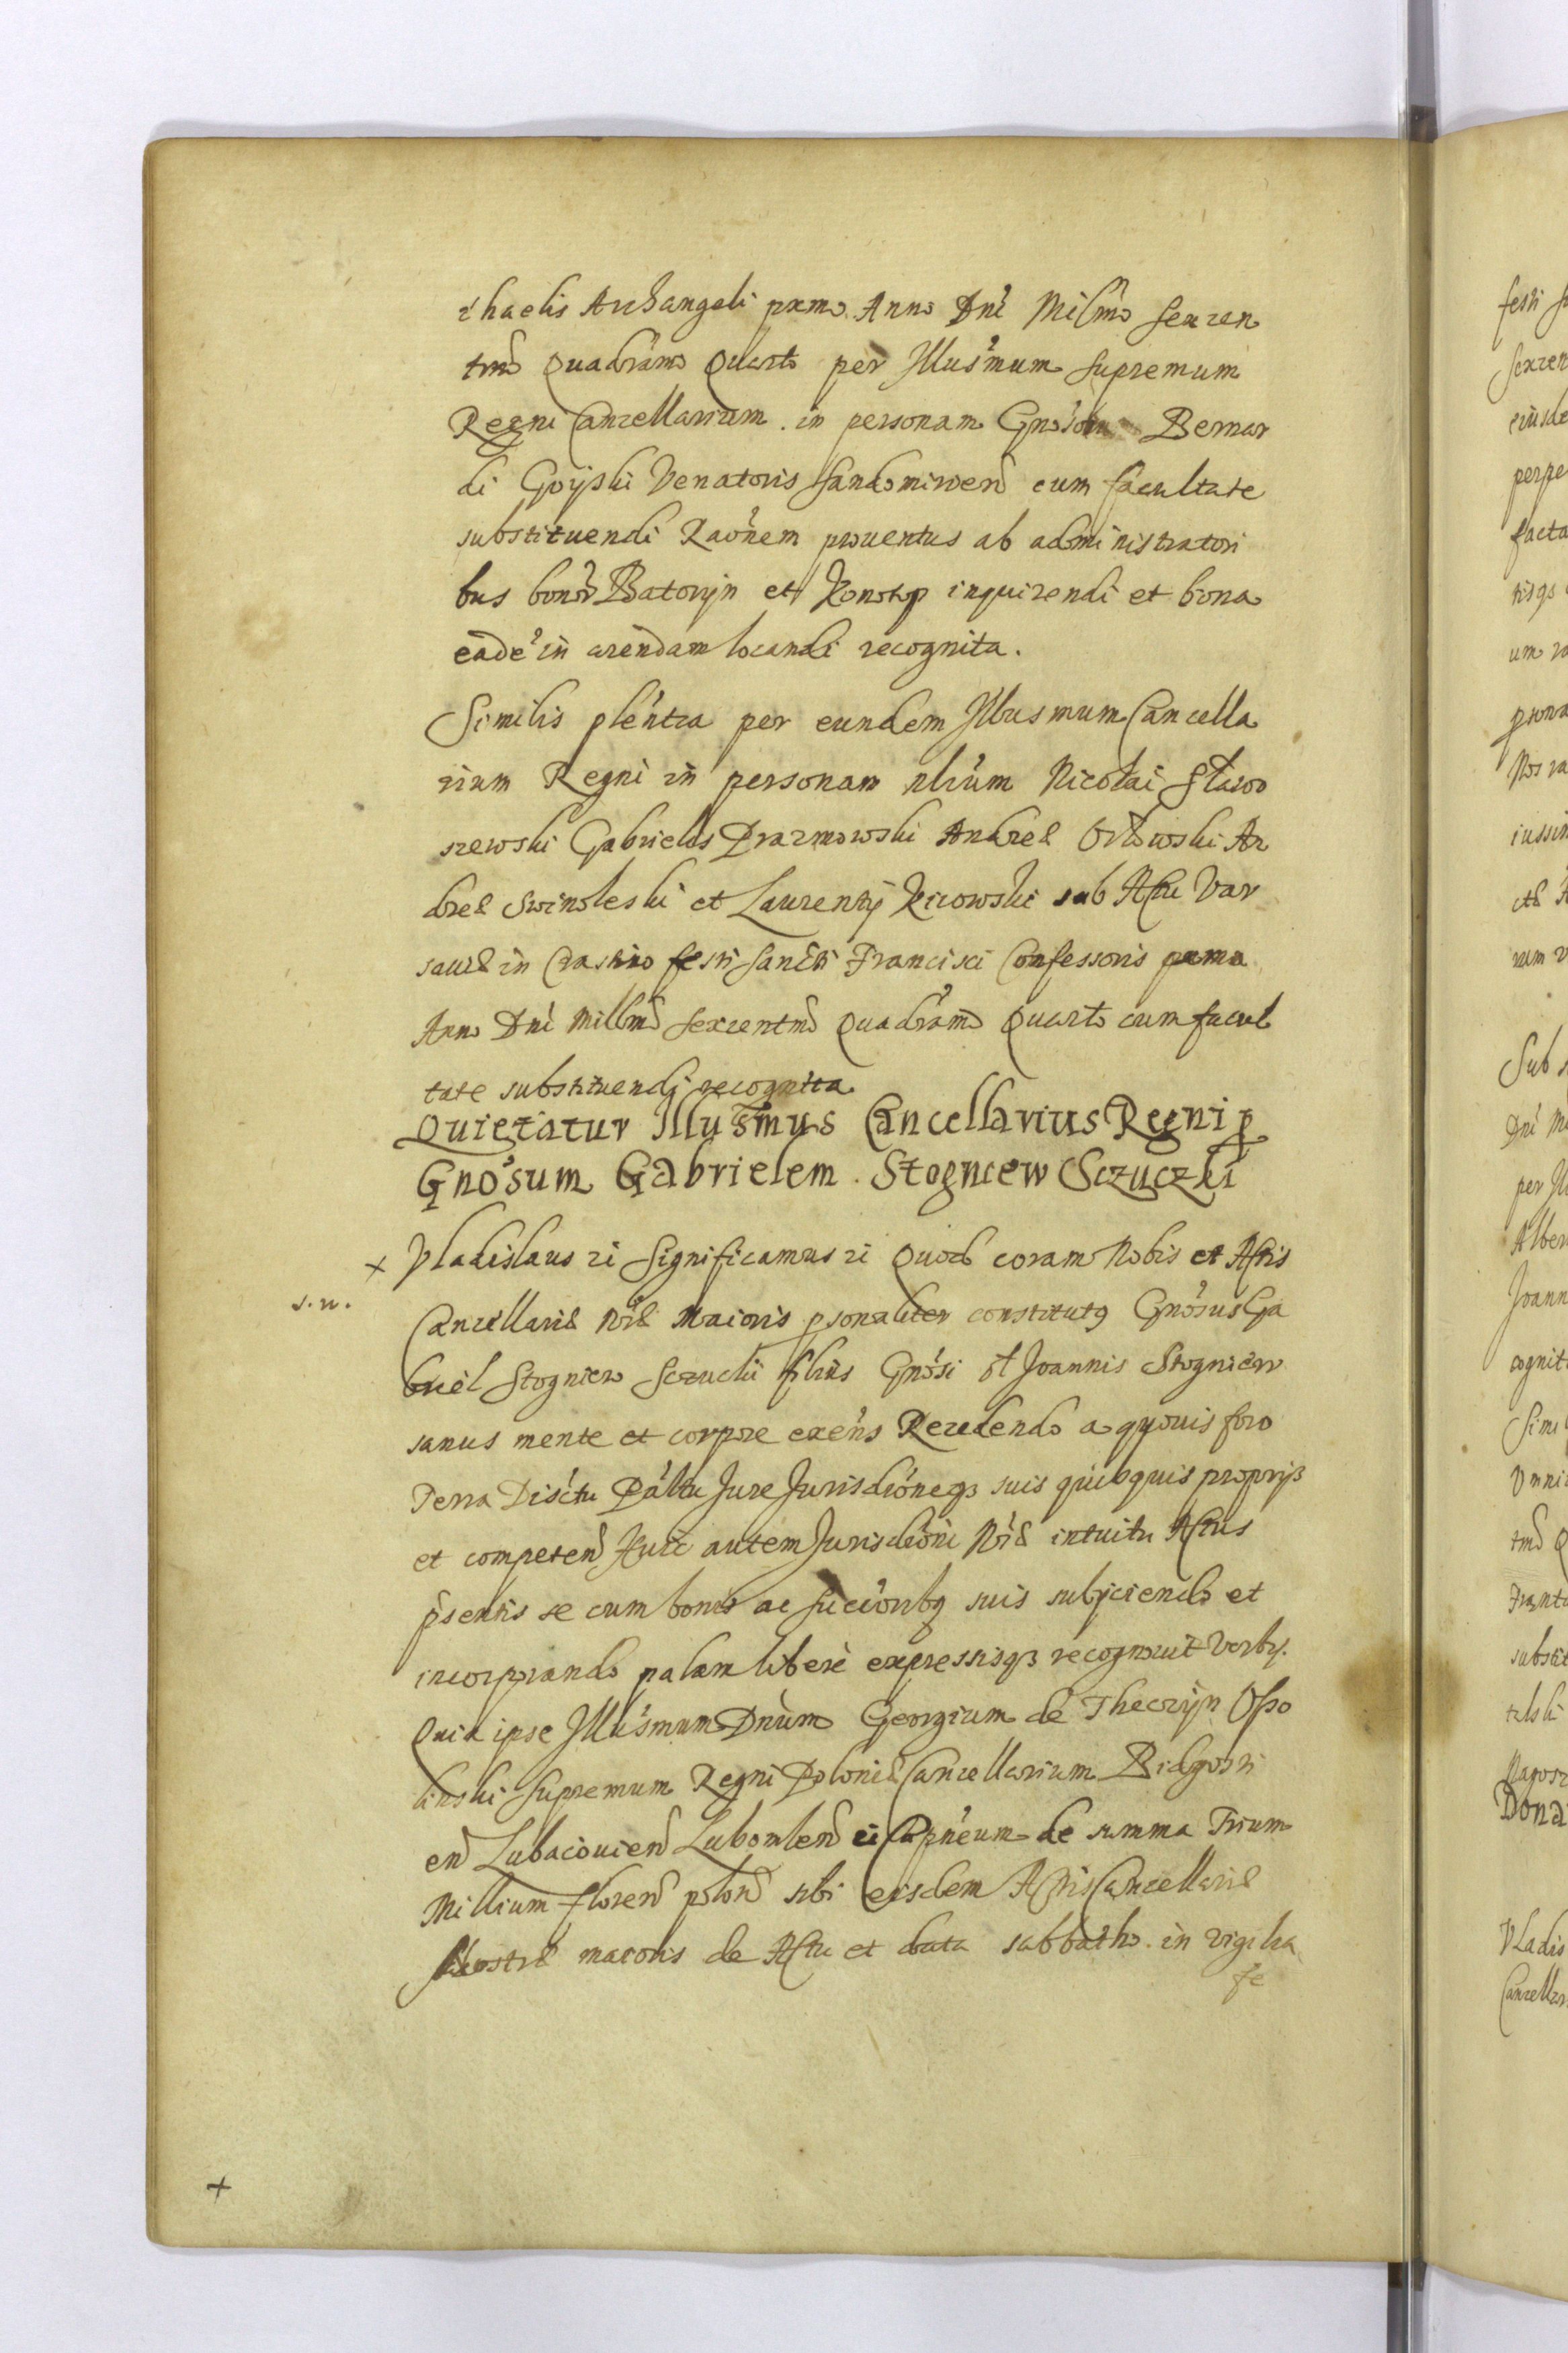 chaelis Archangeli pxmo Anno Dni Milmo sexcen
tmo Quadramo Quarto per Illusmum supremum
Regni Cancellarium in personam Gnosi Bernar
di Goyski Venatoris Sandomirien cum facultate
substituendi Raonem prouentus ab administratori
bus bonor Batoryn et Konotop inquirendi et bona
eade in arendam locandi recognita.
Similis plentia per eundem Illusmum Cancella
rium Regni in personam nlium Nicolai
szewski Gabrielis Prazmowski Andreæ Orlowski An
dreæ Swinoleski et Laurentij Kicowski sub Actu Var
sauiæ in Crastino festi Sancti Francisci Confessoris pxma
Anno Dni Millmo sexcentmo Quadramo Quarto cum facul
tate substituendi recognita
Quietatur Illusmus Cancellarius Regni p
Gnosum Gabrielem Stogniew Sczuczki
x Vladislaus ei Significamus ei Quod coram Nobis et Actis
s.n.
Cancellariæ Nræ Maioris psonaliter constitutq Gnosus Ga
briel Stogniew Sczucki filius Gnosi ol Joannis Stogniew
sanus mente et corpore exens Recedendo a quouis foro
Terra Disctu Paltu Jure Jurisdioneqз suis quibquis proprijs
et competen Huic autem Jurisdioni Nræ intuitu Actus
psentis se cum bonis ac succoribq suis subijciendo et
incorporando palam libere expressisqз recognouit verbis.
Quia ipse Illusmum Dnum Georgium de Theczyn Osso
linski supremum Regni Poloniæ Cancellarium Bidgosti
en Lubaciouien Lubomlen ei Capneum de summa Trium
Millium floren polon sibi eisdem Actis Cancellariæ
Nostræ maioris de Actu et data sabbatho in vigilia
fe
x